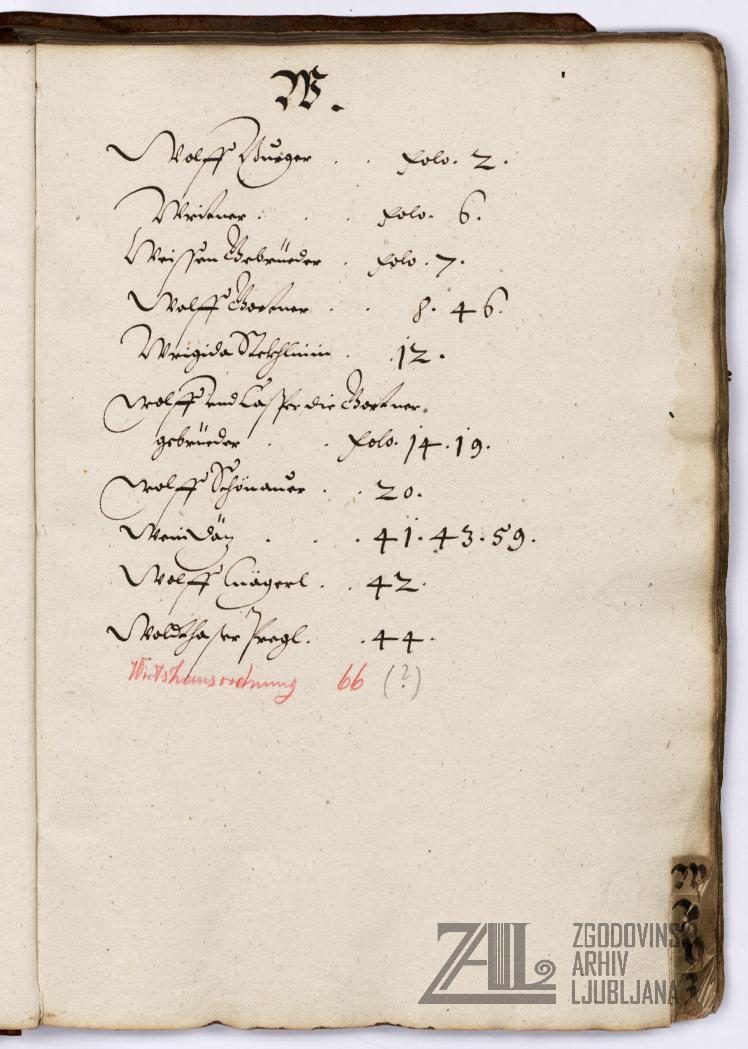 W.
Wolff Burger . . folo. 2.
Writner . . . folo. 6.
Weissen Gebrüeder . folo. 7.
Wolff Gortner . . 8. 46.
Wrigida . 12.
Wolff und Casper die Gortner.
gebrüeder . . folo. 14. 19.
Wolff Schönauer . . 20.
Wein Däz . . . 41. 43. 59.
Wolff . . 42.
Waldthaser Pregl. . 44.
Wirtshausordnung 66 (?)
ZAL ZGODOVINSKI
ARHIV
LJUBLJANA